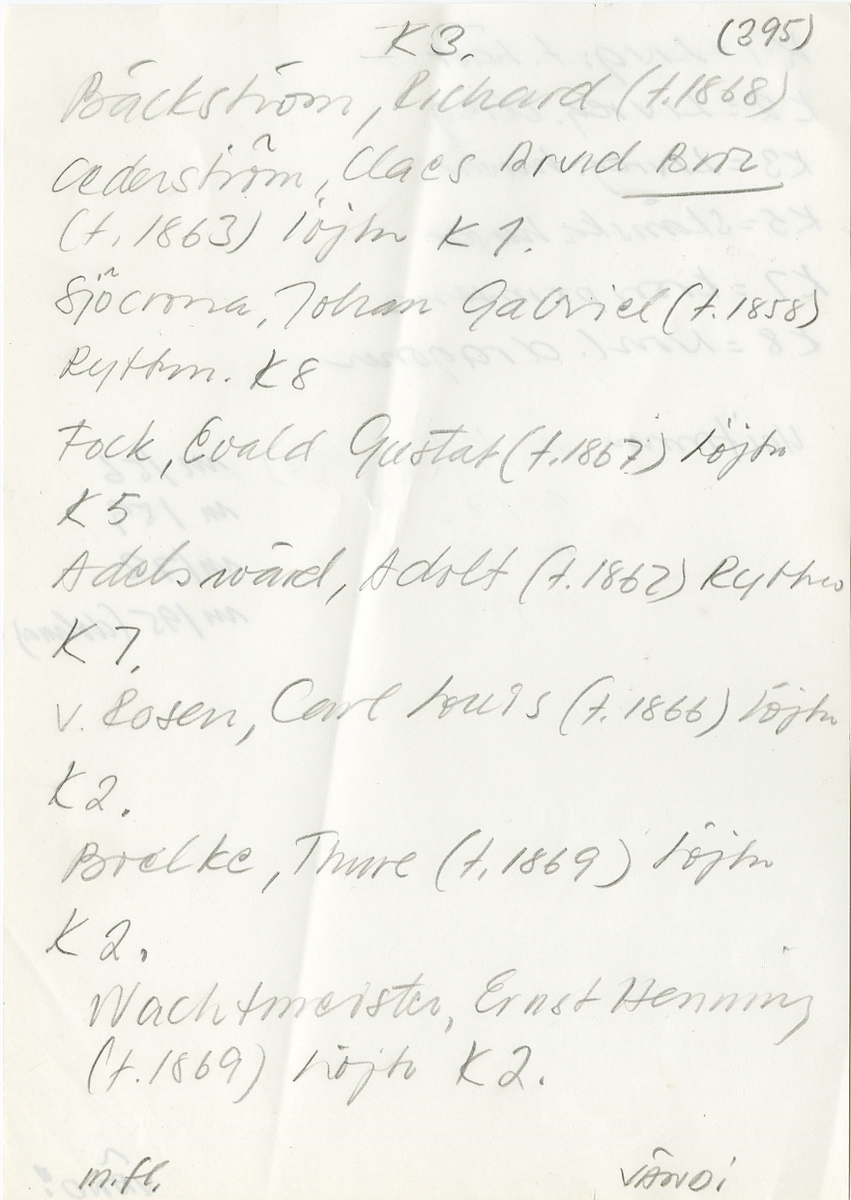 K3. (395)
Bäckström, Richard (f.1868)
Cederström, Claes Arvid Bror
(f. 1863) löjtn K1.
Sjöcrona, Johan Gabriel (f.1858)
Rythm. K8
Fock, Evald Gustaf (f.1867) Löjtn
K5
Adelswärd, Adolf (f.1862) Rythm
K1.
v. Rosen, Carl Louis (f. 1866) Löjtn
K2.
Bielke, Thure (f. 1869) Löjtn
K2.
Wachtmeister, Ernst Henning
(f.1869) Löjtn K2.
m.fl. VÄND!